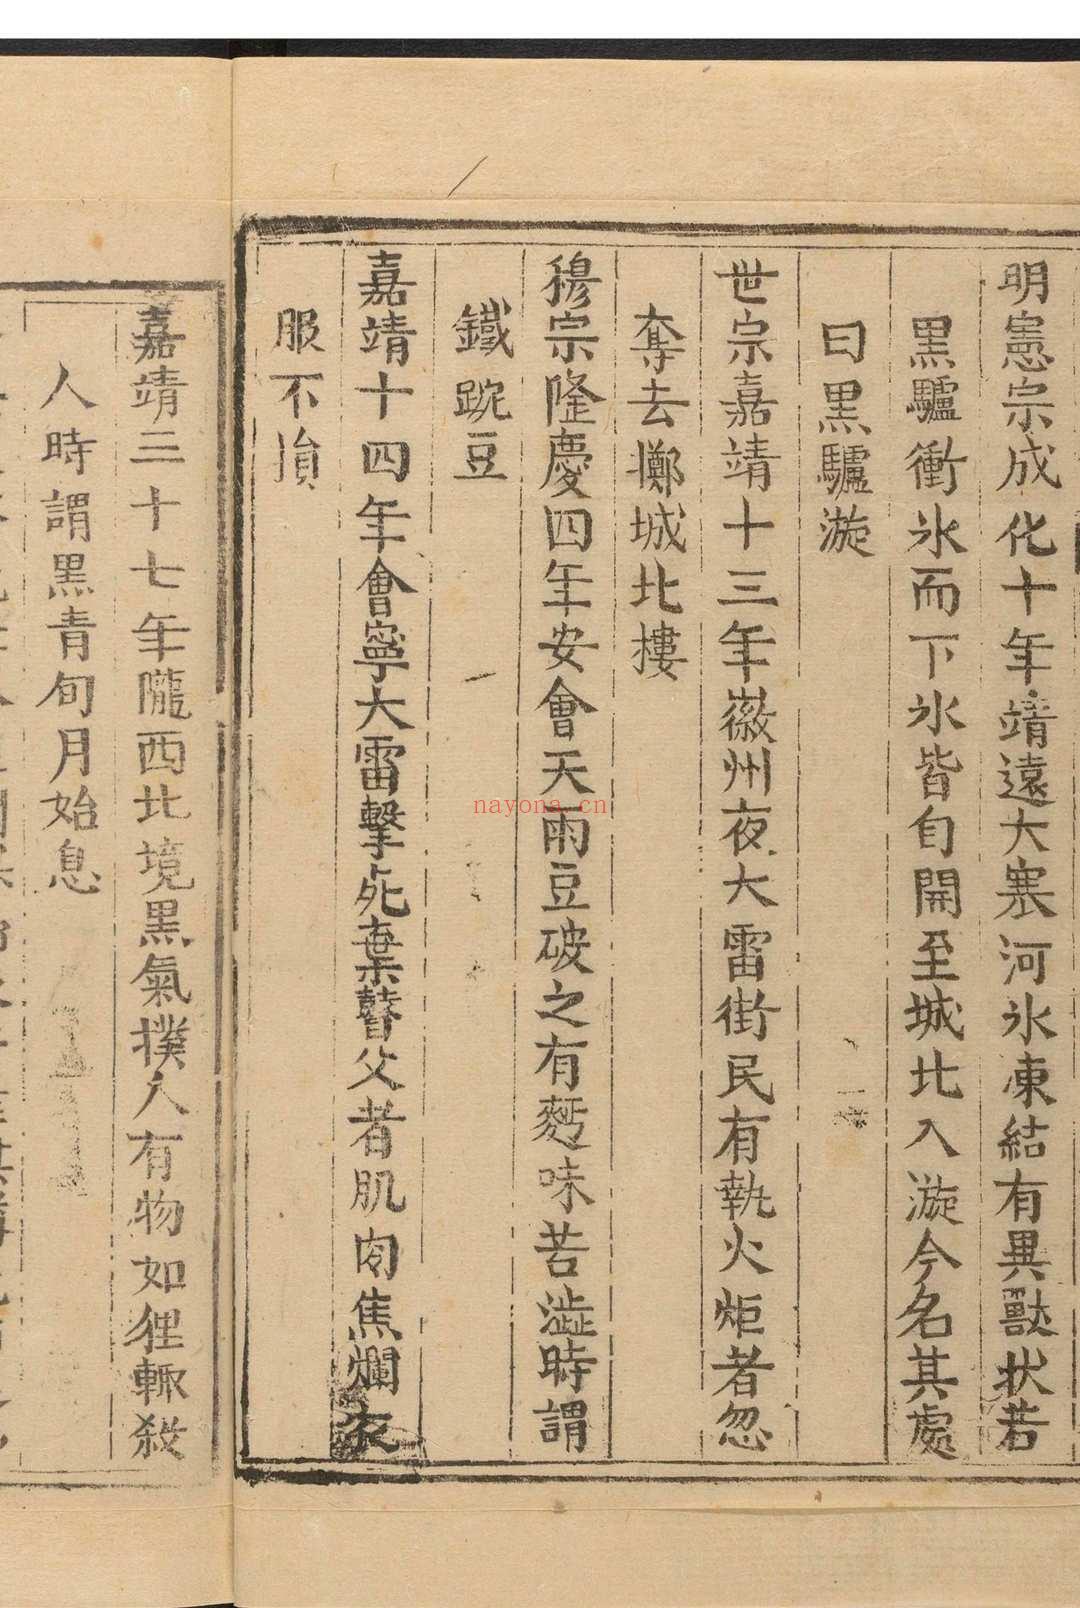 明憲宗成化十年靖遠大寒河氷凍結有異獸狀若
黑驢衝氷而下氷皆自開至城北入漩今名其處
曰黑驢漩
世宗嘉靖十三年徽州夜大雷街民有執火炬者忽
奪去擲城北樓
穆宗隆慶四年安會天雨豆破之有麫味苦澁時謂
鐵踠豆
嘉靖十四年會寧大雷擊死棄瞽父者肌肉焦爛衣
服不損
嘉靖三十七年隴西北境黒氣撲人有物如狸輙殺
人時謂黒青旬月始息
nayona.cn